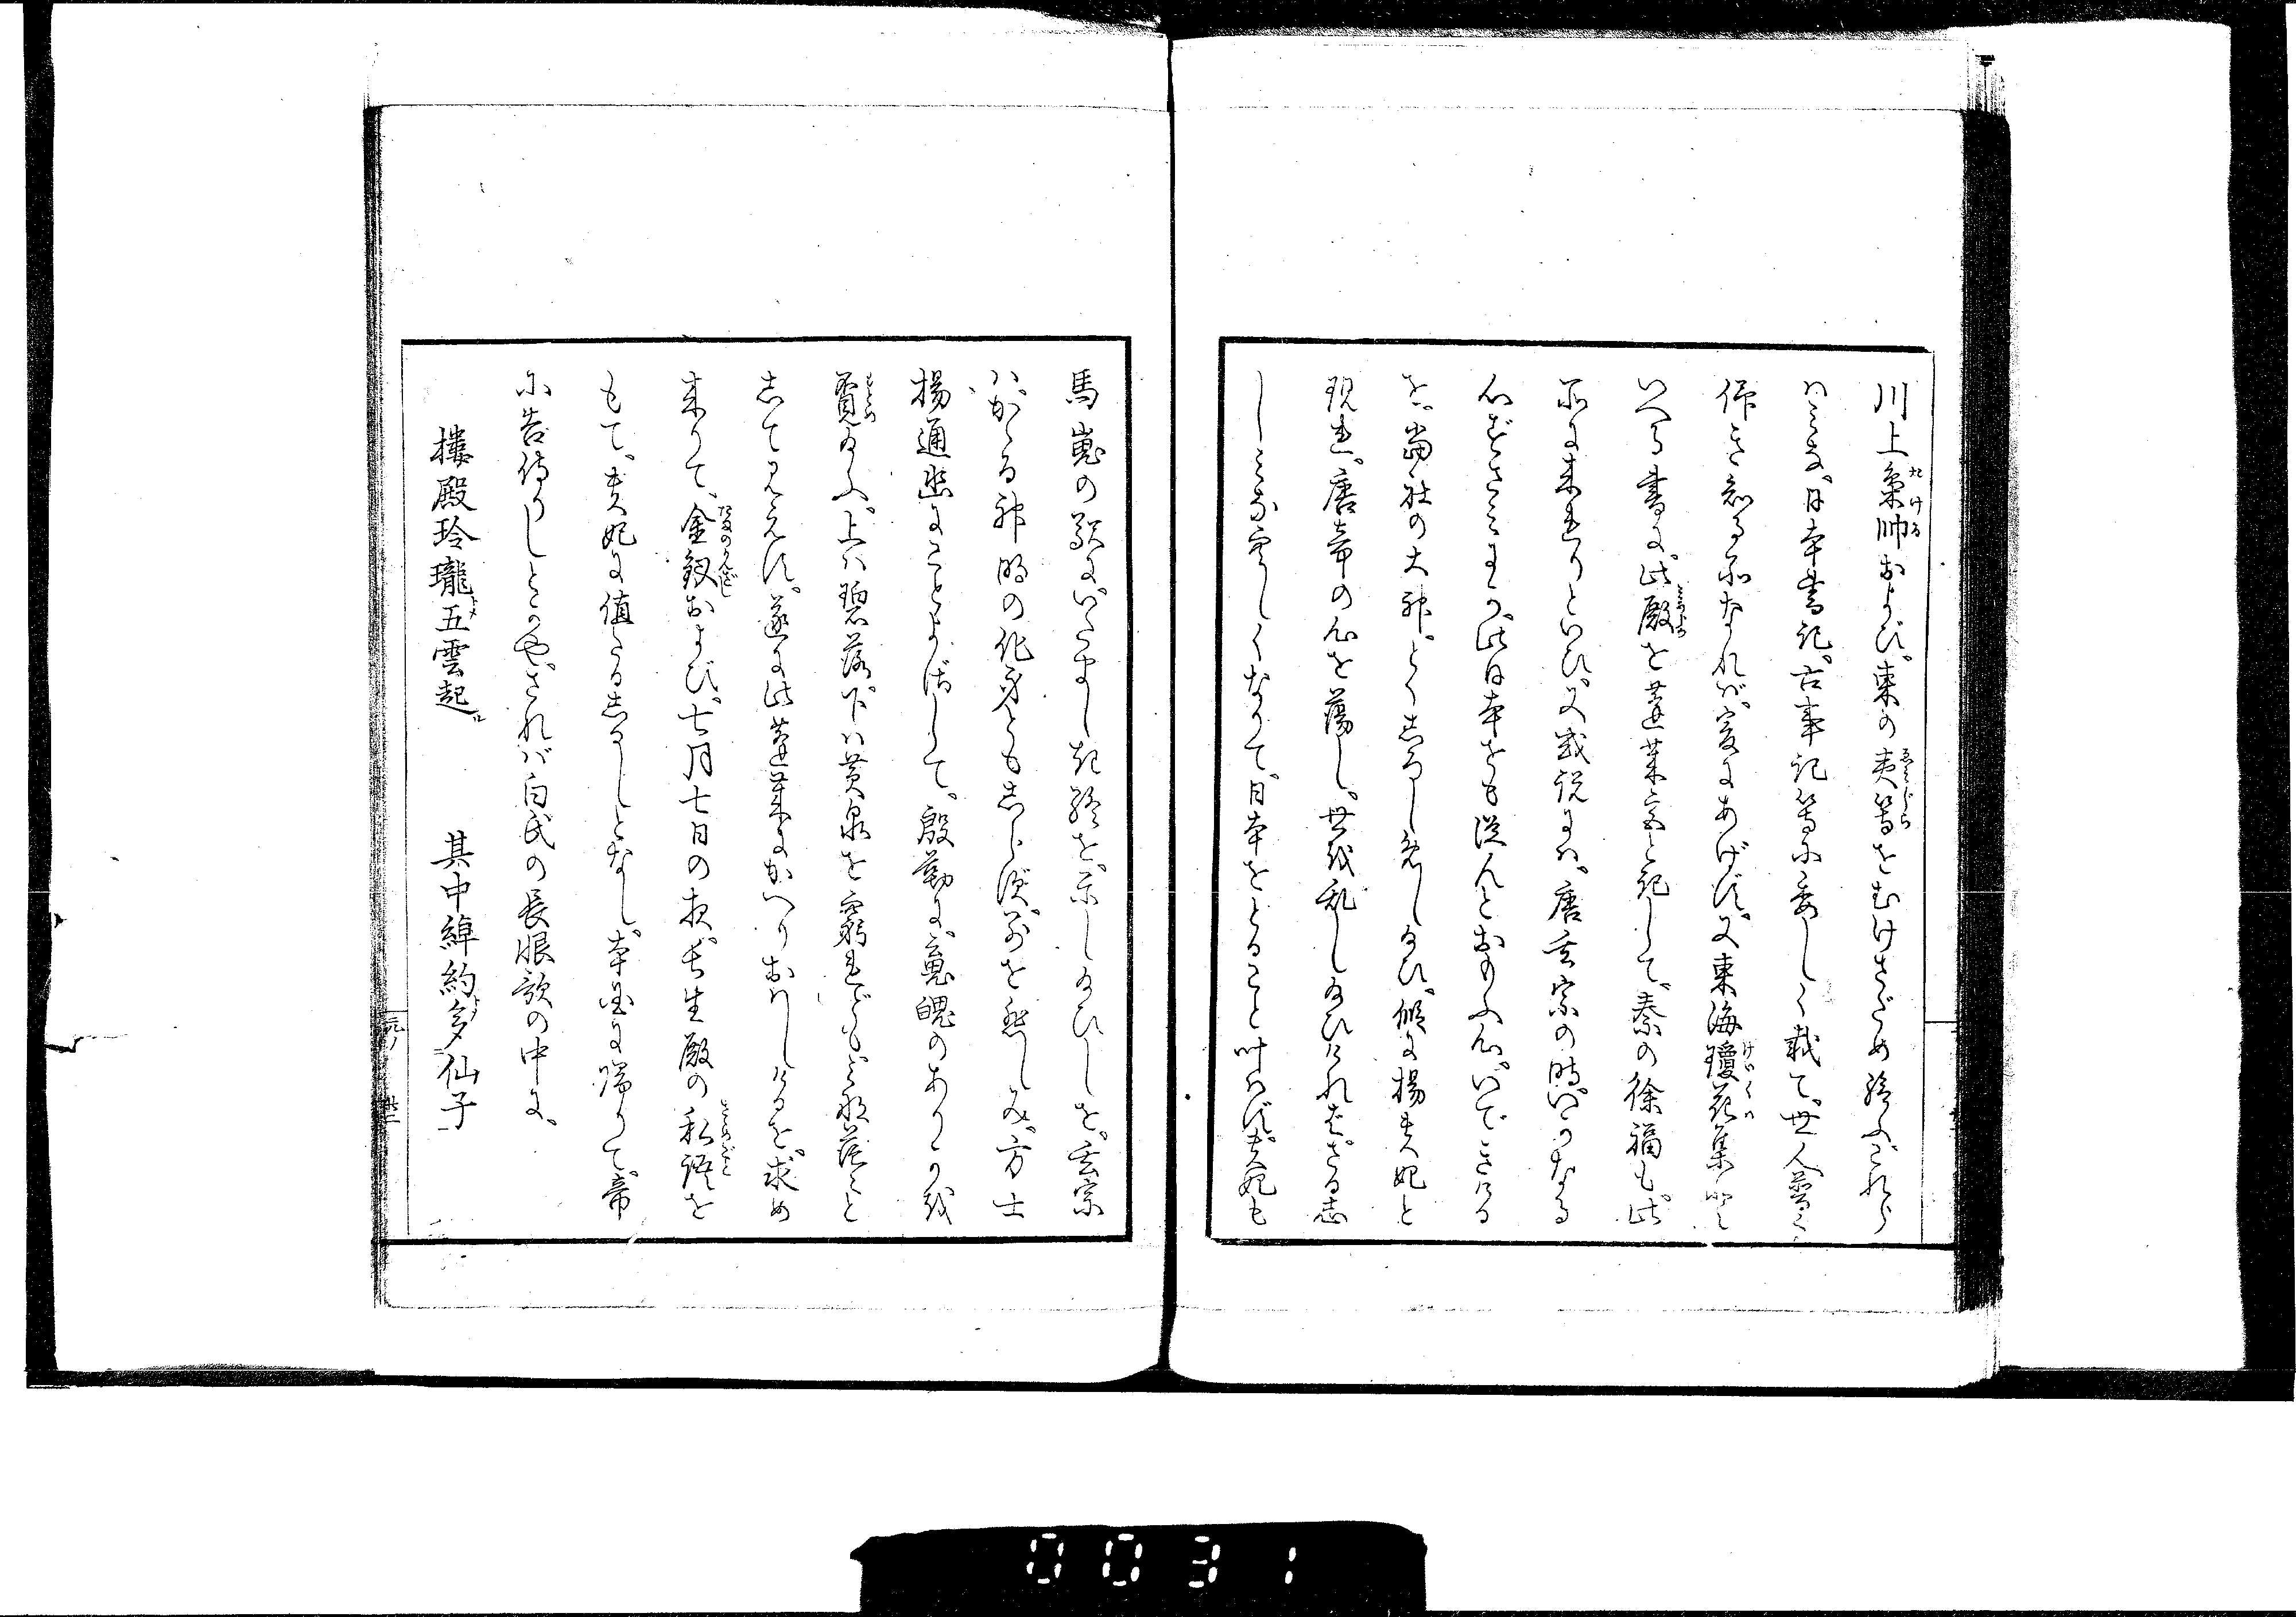 川上梟帥および。東の夷等をむけさだめ給ふ。これら
ハミな。日本書記。古事記等に委しく載て。世人普く
仰き知る所なれバ。爰にあげず。又東海瓊花集と
いへる書に。此殿を蓬莱宮と記して。秦の徐福も此
所に来れりといひ。又或説にハ。唐玄宗の時。いかなる
心ずさミにか。此日本をも従んとおもふ心。いできける
を。当社の大神。とくしろしめし給ひ。仮に楊貴妃と
現れ。唐帝の心を蕩し。世を乱し給ひけれバ。さる志
しミな空しくなりて。日本をとること叶ハず。貴妃も
馬嵬の駅に。いたましき終を。示し給ひしを。玄宗
ハ。かゝる神明の化身ともしらず。別を悲しみ。方士
楊通幽にことよざして。殷勤に。魂魄のありかを
覓給ふ。上ハ碧落下ハ黄泉を窮れども。ミな茫々と
して見えず。遂に此蓬莱にかへりおハしけるを。求め
来りて。金釵および。七月七日の夜。長生殿の私語を
もて。貴妃に値たるしるしとなし。本国に帰りて。帝
に告侍りしとかや。されバ白氏の長恨歌の中に。
樓殿玲瓏五雲起 其中綽約多仙子
0031